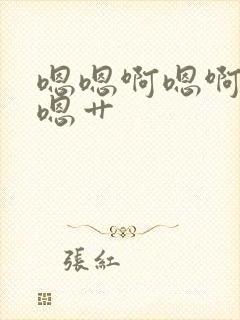 嗯嗯啊嗯啊
嗯艹
張紅